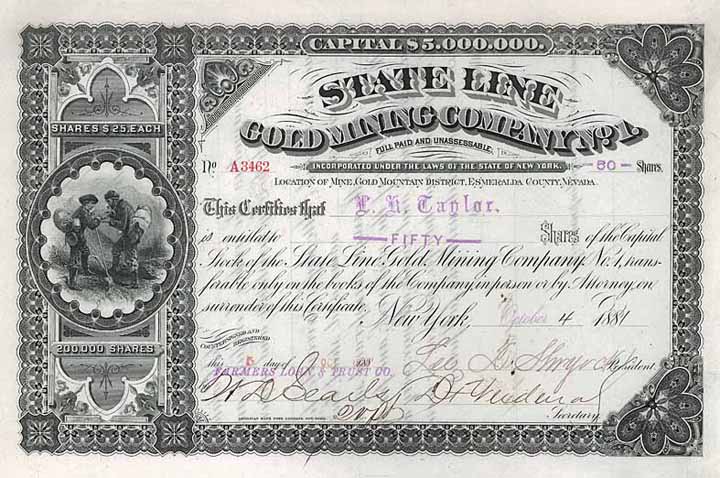 CAPITAL $5,000,000.
STATE LINE
GOLD MINING COMPANY No. 1.
FULL PAID AND UNASSESSABLE.
SHARES $25, EACH
No A3462
INCORPORATED UNDER THE LAWS OF THE STATE OF NEW YORK.
50 Shares.
LOCATION OF MINE, GOLD MOUNTAIN DISTRICT, ESMERALDA COUNTY, NEVADA.
This Certifies that L. H. Taylor.
is entitled to FIFTY Shares of the Capital
Stock of the State Line Gold Mining Company No. 1, trans-
ferable only on the books of the Company in person or by Attorney, on
surrender of this Certificate.
New York, October 4 1881
COUNTERSIGNED AND
REGISTERED
200,000 SHARES
this 5 day of Oct
President.
FARMERS LOAN & TRUST CO.
Secretary.